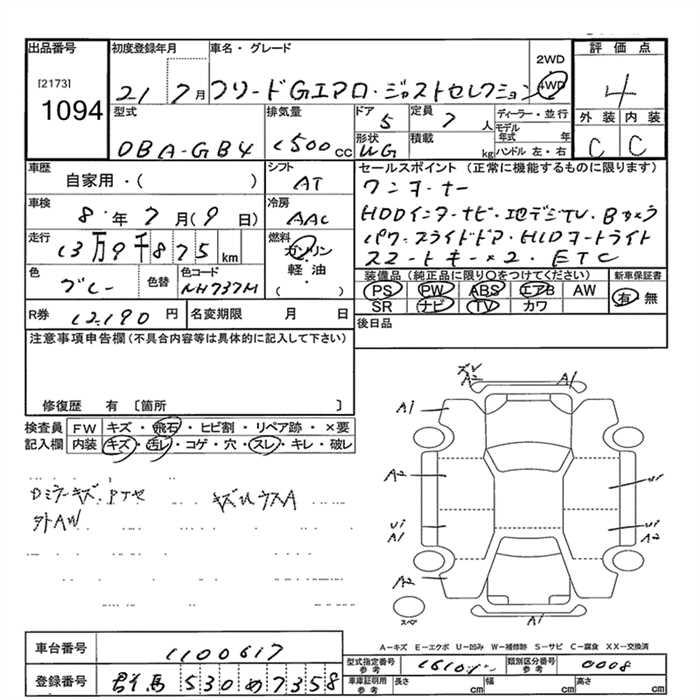 出品番号 初度登録年月 車名・グレード 2WD 評価点
[2173] 1094 21 7月 フリードGエアロ・ジャストセレクション 4WD 4
型式 排気量 ドア 定員 ディーラー・並行 外装 内装
DBA-GB4 1500cc 5 7人 モデル年式 年 C C
形状 積載 kg ハンドル 左・右
WG
車歴 シフト セールスポイント(正常に機能するものに限ります)
自家用・( ) AT ワンオーナー
車検 冷房
8年7月(9日) AAC HDDインターナビ・地デジTV・Bカメラ
走行 燃料 パワースライドドア・HIDオートライト
13万9千875km ガソリン・軽油・( ) スマートキー×2・ETC
色 色替 色コード 装備品(純正品に限り○をつけてください) 新車保証書
グレー NH737M PS PW ABS エアB AW 有 無
SR ナビ TV カワ
R券 12,190円 名変期限 月 日 後日品
注意事項申告欄(不具合内容等は具体的に記入して下さい)
修復歴 有 [箇所 ]
検査員 FW キズ・飛石・ヒビ割・リペア跡・×要
記入欄 内装 キズ・汚レ・コゲ・穴・スレ・キレ・破レ
外AW
ズレ
A2 A1
A1
A2
U1
U1 U1
A1 A2
A2
スペア A1
A-キズ E-エクボ U-凹み W-補修跡 S-サビ C-腐食 XX-交換済
車台番号 1100617
型式指定番号 参考 類別区分番号 参考 0008
登録番号 群馬 530 め 7358
車庫証明用 参考 長さ cm 幅 cm 高さ cm